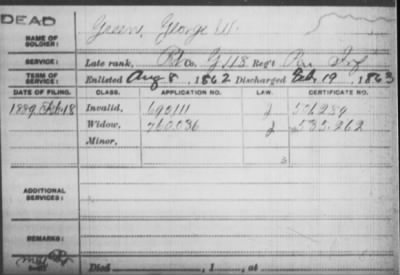 DEAD
NAME OF SOLDIER: Green, George W.
SERVICE: Late rank, Pvt Co. G 118 Reg't Pa. Inf
TERM OF SERVICE: Enlisted Aug 8, 1862 Discharged Feb. 19, 1863
DATE OF FILING. CLASS. APPLICATION NO. LAW. CERTIFICATE NO.
1889, Feb. 18 Invalid, 690111 2
Widow, 760036 2 535.262
Minor,
ADDITIONAL SERVICES:
REMARKS:
Died , 1 , at